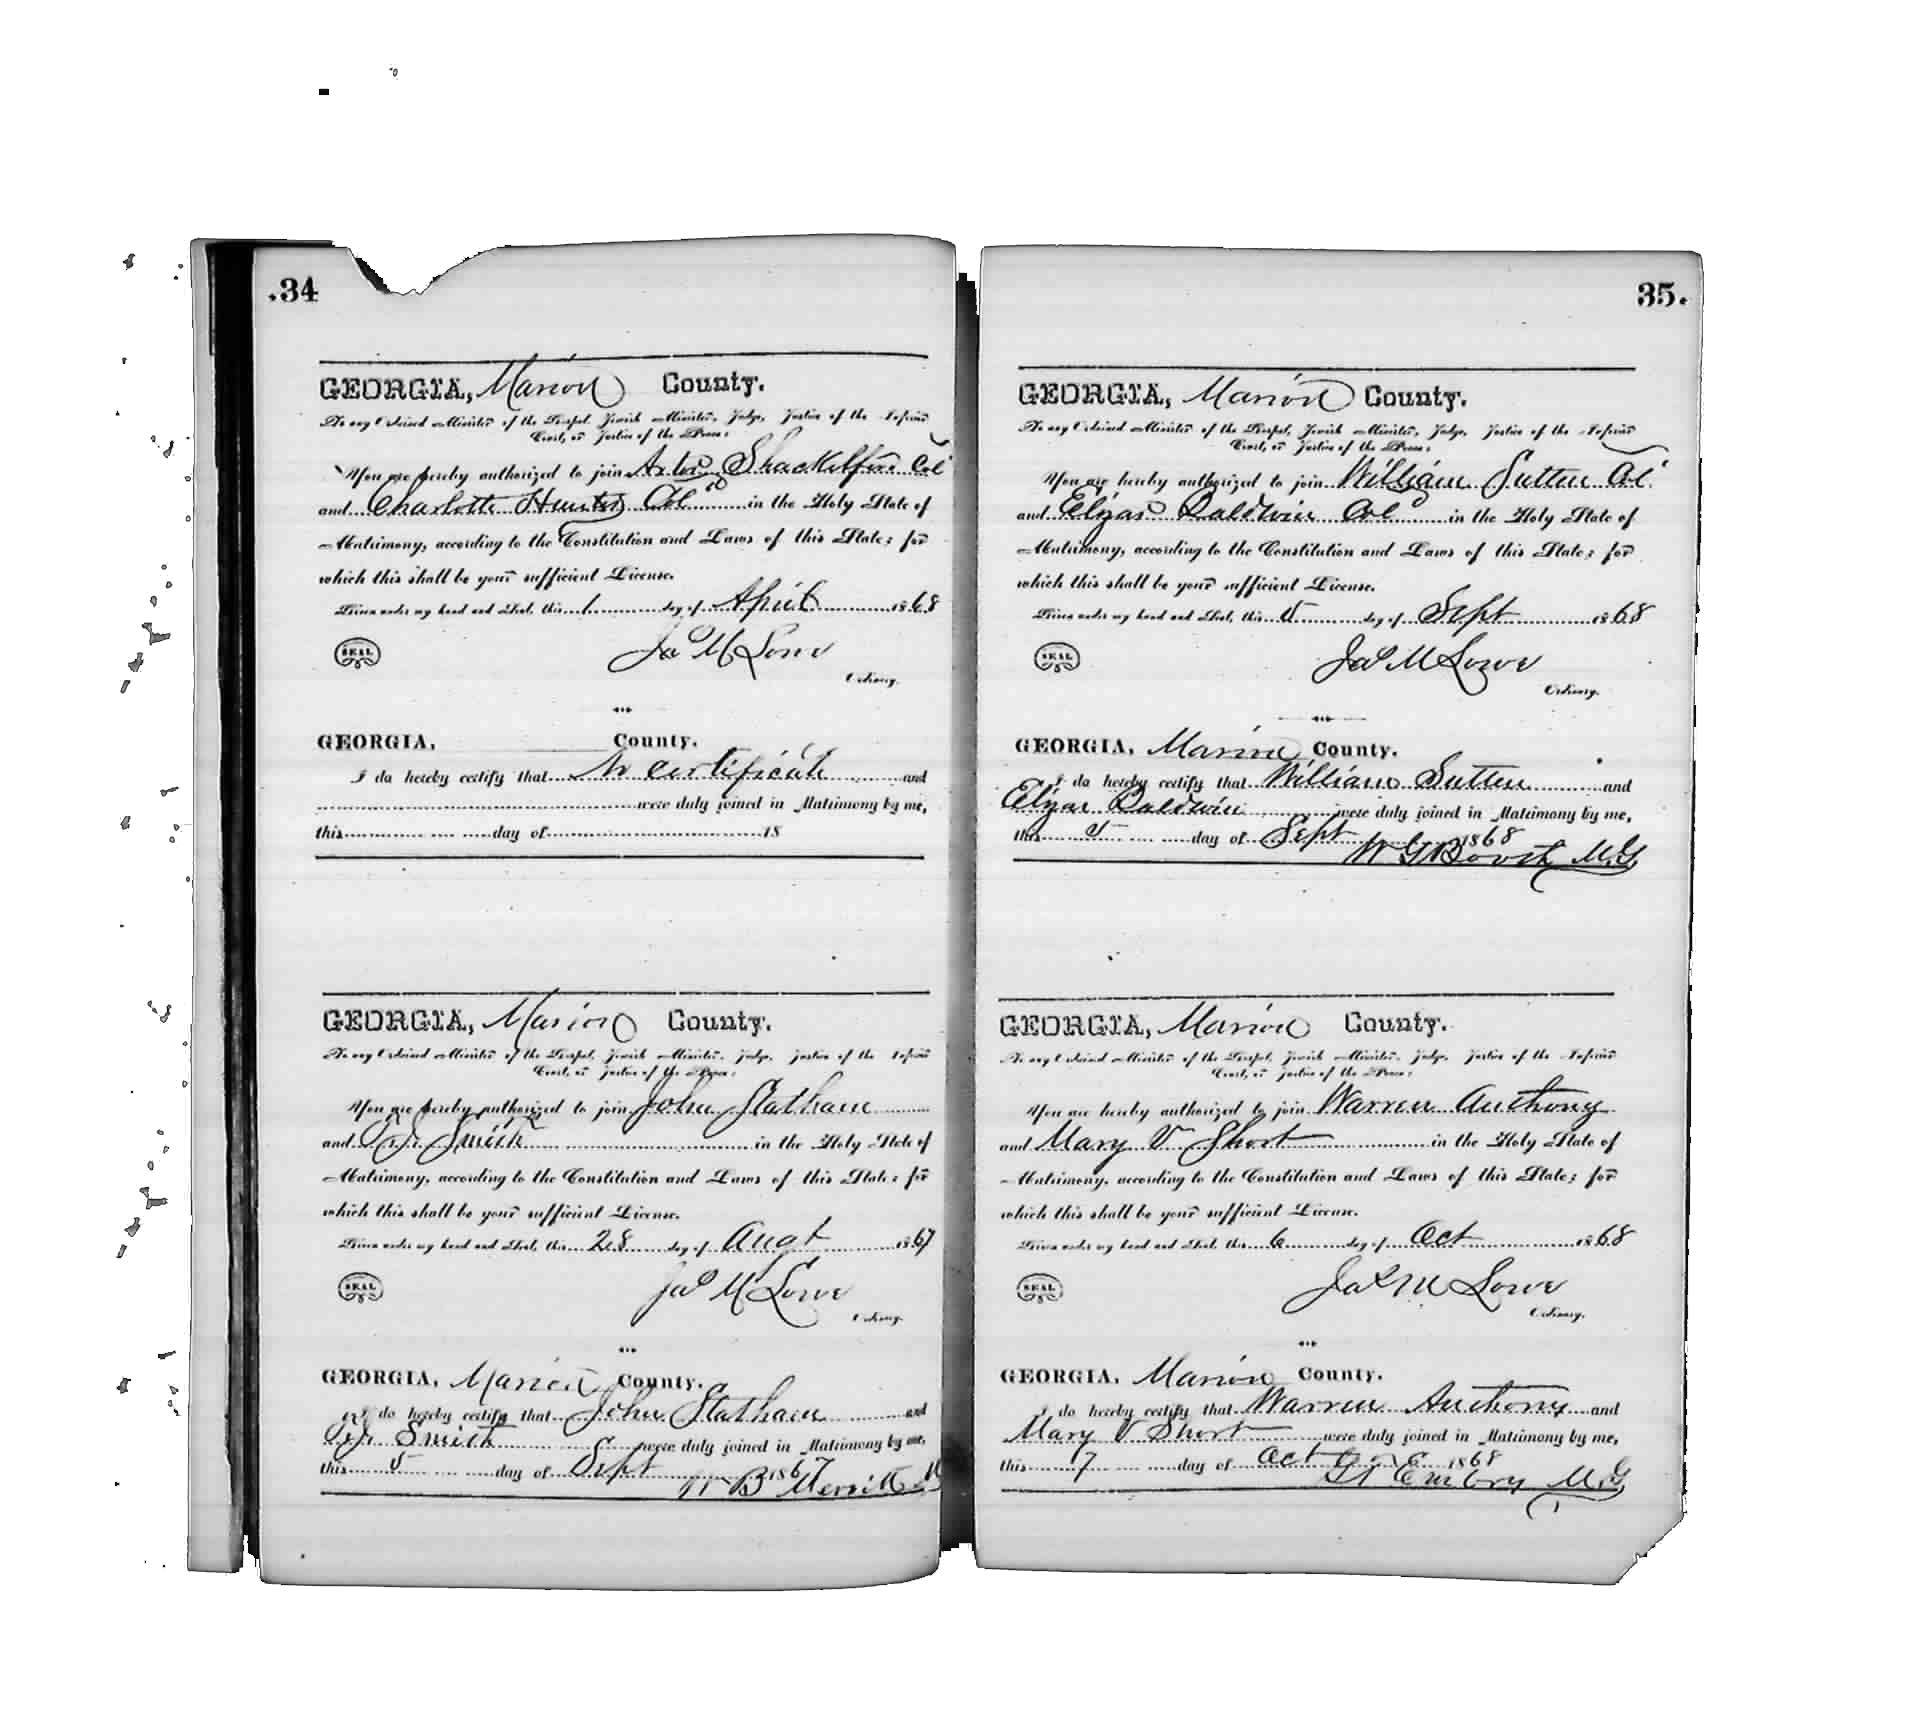 .34
GEORGIA, Marion County.
To any Ordained Minister of the Gospel, Jewish Minister, Judge, Justice of the Inferior
Court, or Justice of the Peace:
You are hereby authorized to join Shackelford Col
and Charlotte Hunter Col in the Holy State of
Matrimony, according to the Constitution and Laws of this State; for
which this shall be your sufficient License.
Given under my hand and Seal, this 1 day of April 1868
SEAL
Jas M Lowe
Ordinary.
GEORGIA, County.
I do hereby certify that No certificate and
were duly joined in Matrimony by me,
this day of 18
GEORGIA, Marion County.
To any Ordained Minister of the Gospel, Jewish Minister, Judge, Justice of the Inferior
Court, or Justice of the Peace:
You are hereby authorized to join John Statham
and Smith in the Holy State of
Matrimony, according to the Constitution and Laws of this State; for
which this shall be your sufficient License.
Given under my hand and Seal, this 28 day of Augt 1867
SEAL
Jas M Lowe
Ordinary.
GEORGIA, Marion County.
I do hereby certify that John Statham and
Smith were duly joined in Matrimony by me,
this 5 day of Sept 1867
W B Merritt
35.
GEORGIA, Marion County.
To any Ordained Minister of the Gospel, Jewish Minister, Judge, Justice of the Inferior
Court, or Justice of the Peace:
You are hereby authorized to join William Sutten Col
and Elizar Baldwin Col in the Holy State of
Matrimony, according to the Constitution and Laws of this State; for
which this shall be your sufficient License.
Given under my hand and Seal, this 5 day of Sept 1868
SEAL
Jas M Lowe
Ordinary.
GEORGIA, Marion County.
I do hereby certify that William Sutten and
Elizar Baldwin were duly joined in Matrimony by me,
this 5 day of Sept 1868
W G M.G.
GEORGIA, Marion County.
To any Ordained Minister of the Gospel, Jewish Minister, Judge, Justice of the Inferior
Court, or Justice of the Peace:
You are hereby authorized to join Warren Anthony
and Mary V Short in the Holy State of
Matrimony, according to the Constitution and Laws of this State; for
which this shall be your sufficient License.
Given under my hand and Seal, this 6 day of Oct 1868
SEAL
Jas M Lowe
Ordinary.
GEORGIA, Marion County.
I do hereby certify that Warren Anthony and
Mary V Short were duly joined in Matrimony by me,
this 7 day of Oct 1868
Embry M.G